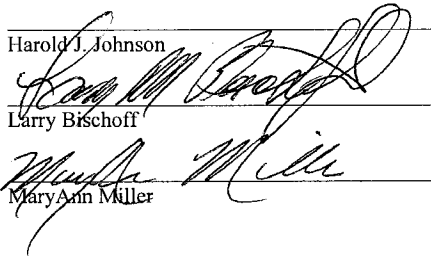 Harold J. Johnson
Larry M Bischoff
Larry Bischoff
MaryAnn Miller
MaryAnn Miller